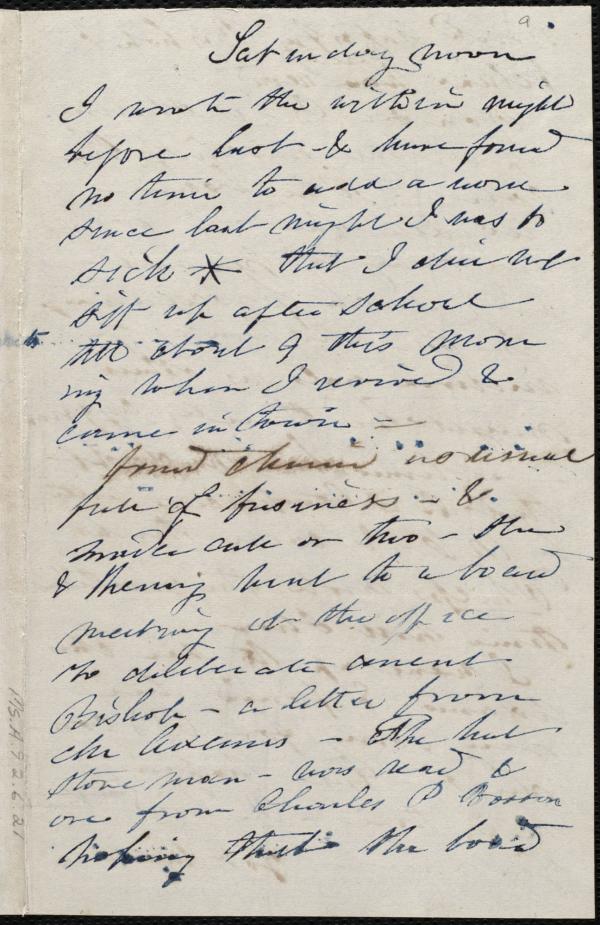 9
Saturday noon
I wrote the within night
before last - & have found
no time to add a word
since last night I was so
sick * that I did not
sit up after school
till about 9 this morn
ing when I revived &
came in town -
found as usual
full of business - & 
made call or two - She
& Henry went to a board
meeting at the office
to deliberate anent
Bishop - a letter from
- The hat
store man - was read &
one from Charles P Bosson
hoping that the board
Ms.A.9.2.6.21